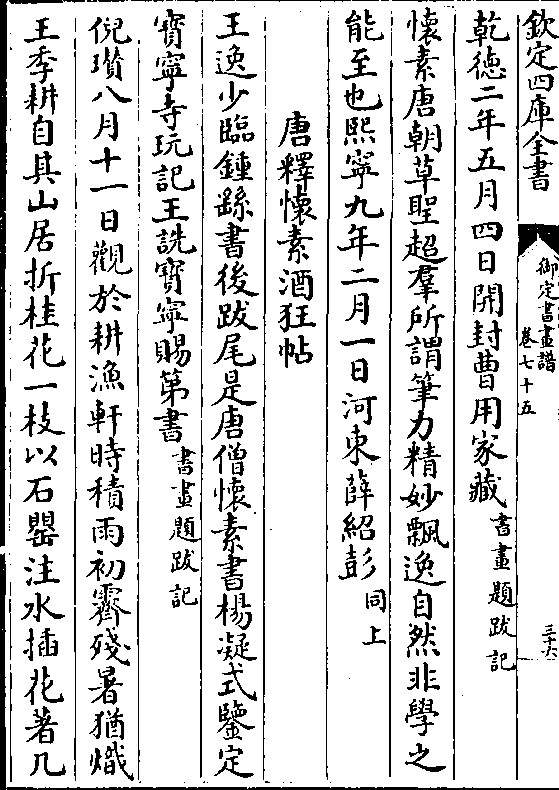 欽定四庫全書
御定書畫譜
卷七十五
三十六
乾德二年五月四日開封曹用家藏書畫題跋記
懷素唐朝草聖超羣所謂筆力精妙飄逸自然非學之
能至也熙寧九年二月一日河東薛紹彭同上
唐釋懷素酒狂帖
王逸少臨鍾繇書後跋尾是唐僧懷素書楊凝式鑒定
寳寧寺玩記王詵寳寧賜第書書畫題跋記
倪瓚八月十一日觀於耕漁軒時積雨初霽殘暑猶熾
王季耕自其山居折桂花一枝以石罌注水插花著几